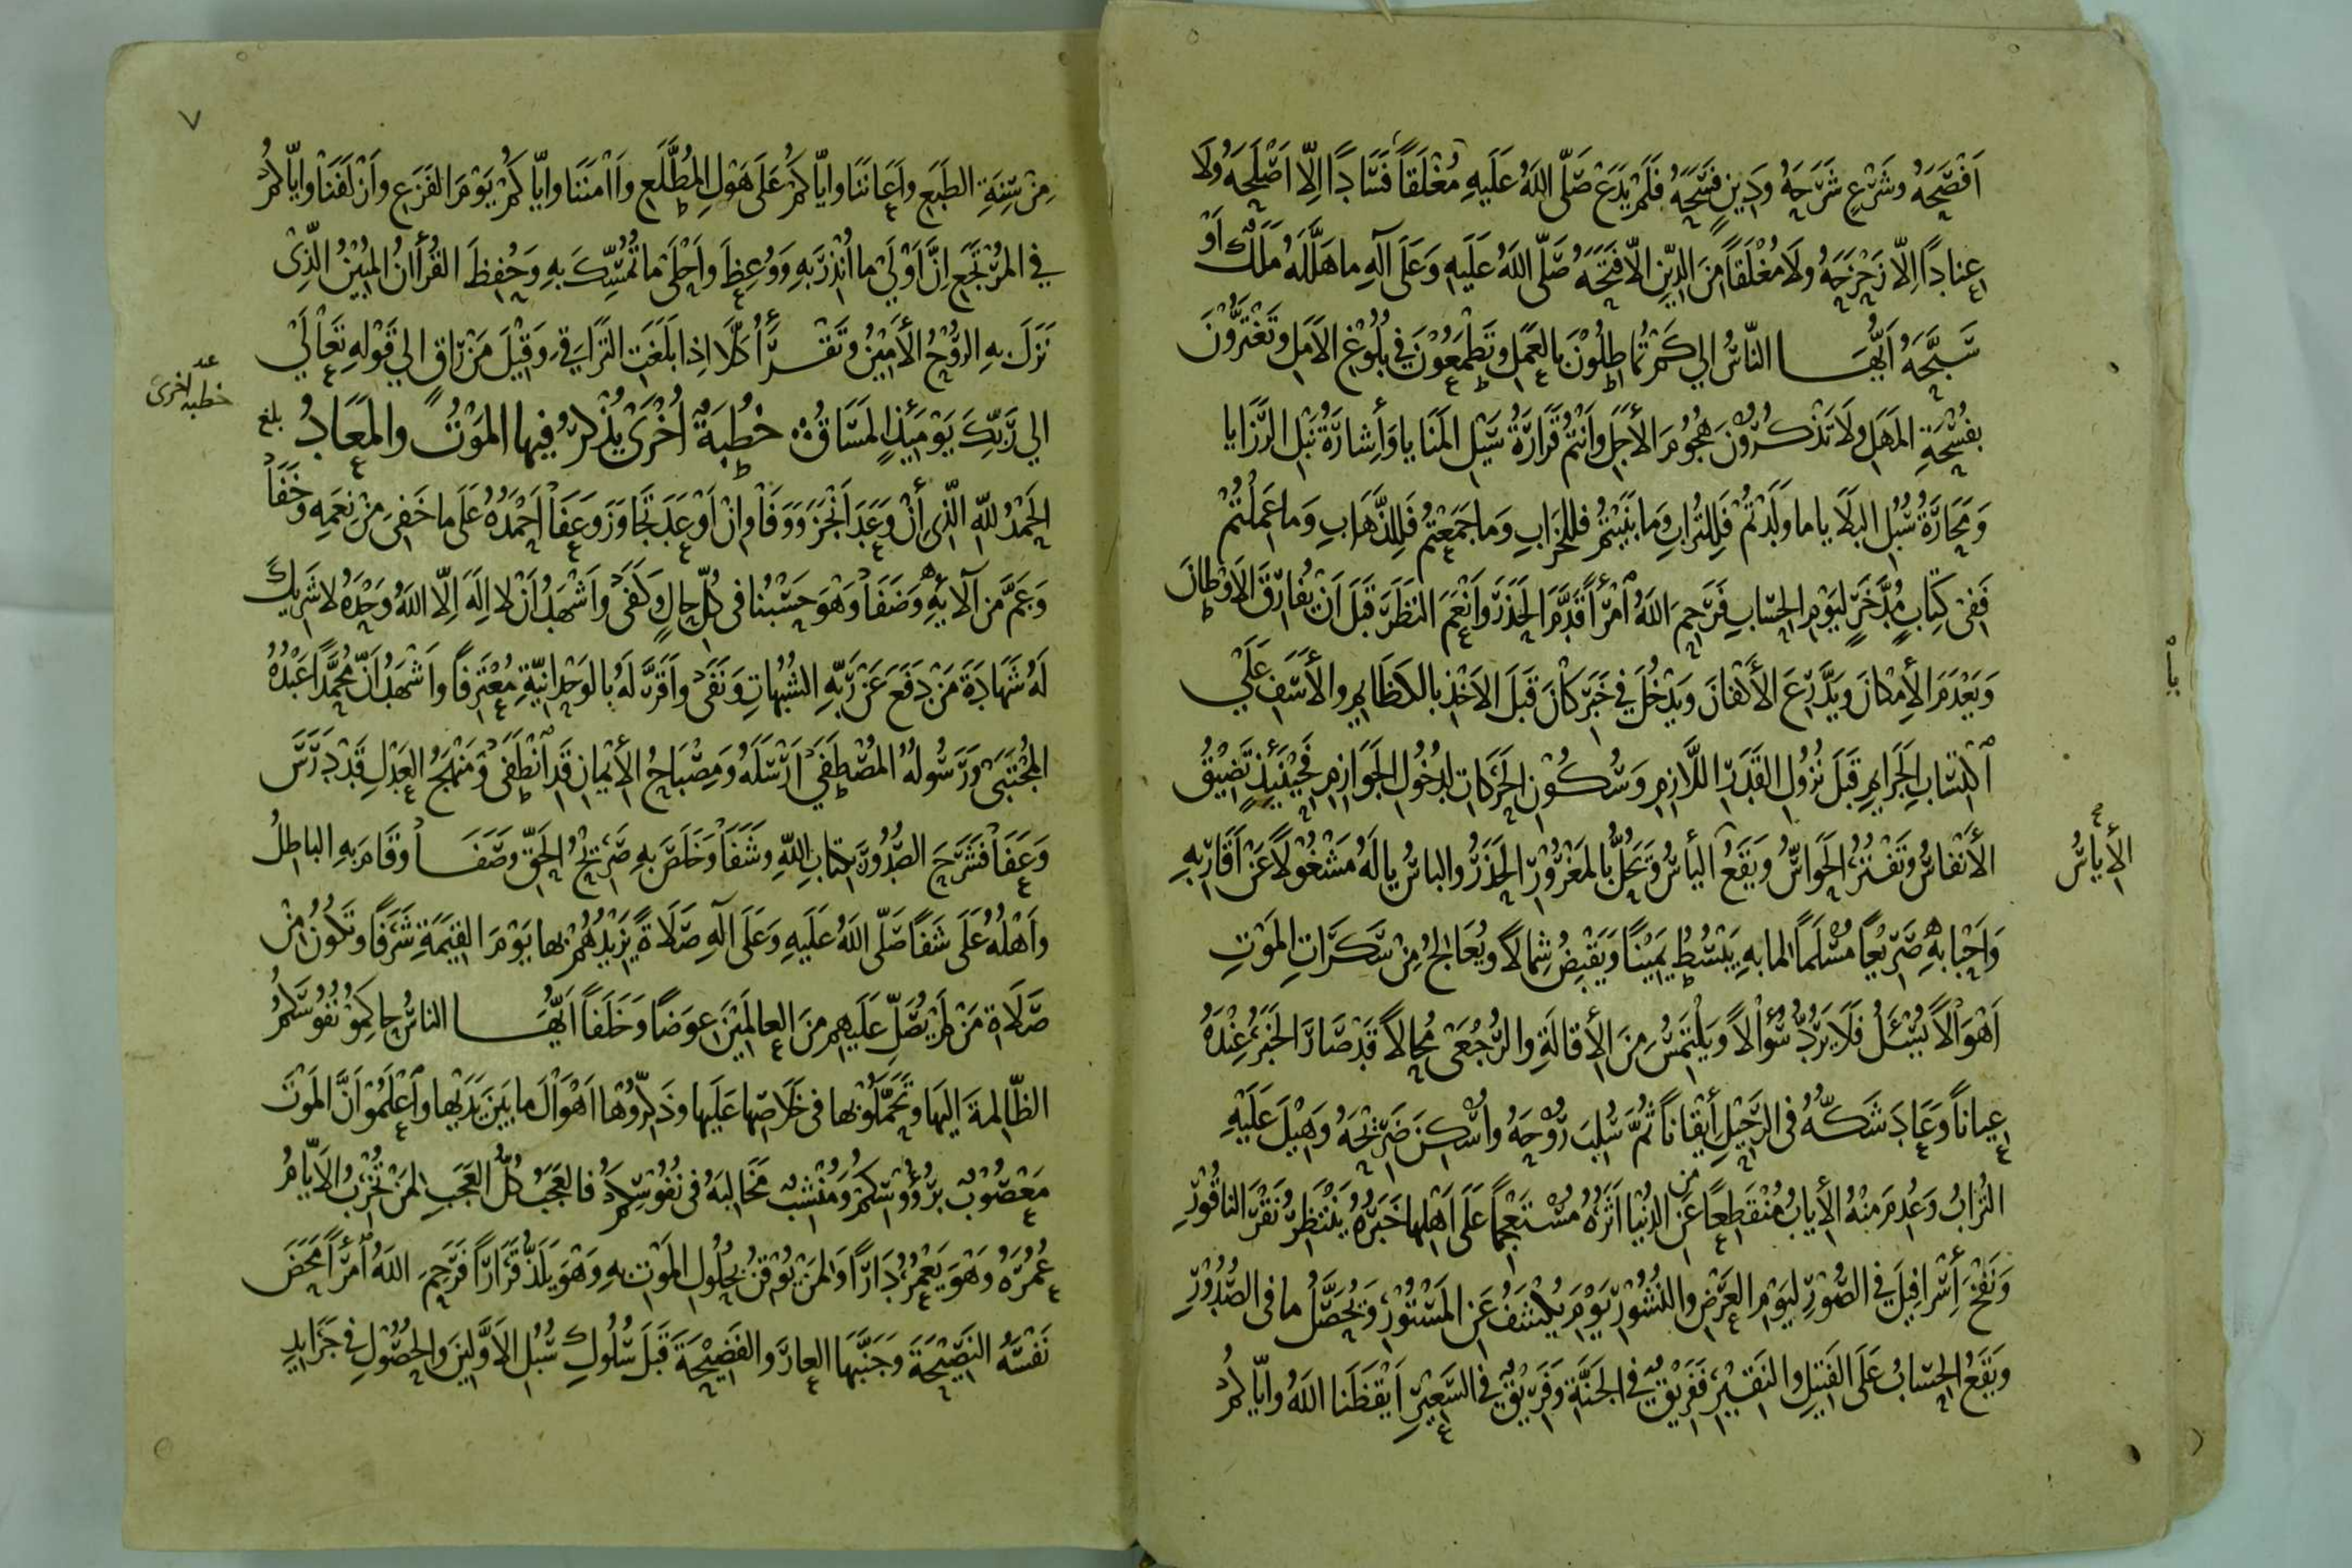 اَفْصَحَهُ وشَرْعٍ شَرَحَهُ ودِينٍ فَسَّحَهُ فَلَمْ يَدَعْ صَلَّى اللهُ عَلَيهِ مُغْلَقاً فَسَاداً اِلّا اَصْلَحَهُ ولَا
عِناداً اِلّا زَحْزَحَهُ ولَا مُغْلَقاً مِنَ الدِّينِ الّا فَتَحَهُ صَلّى اللهُ عَلَيهِ وَعَلَى آلِهِ ما هَلَّلَهُ مَلَكٌ اَوْ
سَبَّحَهُ اَيُّهَا الناسُ الي كَمْ تُماطِلُوْنَ بالعَمَلِ وتَطْمَعُوْنَ في بُلُوْغِ الاَمَلِ وتَغْتَرُّوْنَ
بفُسْحَةِ المَهَلِ ولَا تَذْكُرُوْنَ هُجُوْمَ الأَجَلِ وأَنْتُمْ قَرَارَةُ سَيْلِ المَنَايا وَأِشارَةُ نَبْلِ الرَّزَايا
وَمَحَارَّةُ سُبُلِ البَلَايا ما وَلَدْتُمْ فَلِلتُرابِ وَما بَنَيْتُمْ فللخَرابِ وَما جَمَعْتُمْ فَلِلذَّهَابِ وَما عَمِلْتُمْ
فَفِيْ كِتَابٍ مُدَّخَرٍ ليَوْمِ الحِسَابِ فَرَحِمَ اللهُ امْرأً قَدَّمَ الحَذَرَ وأنْعَمَ النَظَرَ قَبلَ اَنْ يُفَارِقَ الاَوْطَانَ
وَيَعْدَمَ الأِمكانَ ويَدَّرِعَ الأَكفانَ ويَدْخُلَ في خَبَرِ كانَ قَبلَ الاَخْذِ بالكَظَايِمِ والأَسَفِ عَلَي
اكْتِسَابِ الجَرَايِمِ قَبلَ نُزُولِ القَدَرِ اللَّازِمِ وَسُكُوْنِ الحَرَكَاتِ لدُخُولِ الجَوَازِمِ فَحِيْنَئِذٍ تَضِيْقُ
الأَنْفاسُ وتَفْتُرُ الحَوَاسُّ ويَقَعُ اليأسُ ويَحُلُّ بالمَغْرُوْرِ الحَذَرُ والباسُ يا لَهُ مَشْغُوْلاً عَنْ اَقَارِبِهِ
الأِياسُ
وَاَحْبابِهِ صَرِيْعاً مُسْلَماً لما بهِ يَبْسُطُ يَمِيْناً وَيَقْبِضُ شِمالاً ويُعَالِجُ مِنْ سَكَرَاتِ المَوْتِ
اَهْوَالاً يُسْئَلُ فَلَا يَرُدُّ سُؤالاً ويَلْتَمِسُ مِنَ الأِقالَةِ والرُّجْعَى مُحَالاً قَدْ صَارَ الخَبَرُ عِنْدَهُ
عِياناً وَعَادَ شَكُّهُ فى الرَّحِيْلِ أِيْقَاناً ثُمَّ سُلِبَ رُوْحَهُ واُسْكِنَ ضَرِيْحَهُ وَهِيْلَ عَلَيْهِ
التُرابُ وَعُدِمَ مِنْهُ الأِيابُ مُنْقَطِعاً عَنِ الدُنْيا اَثَرُهُ مُسْتَعْجِماً عَلَى اَهْلِها خَبَرُهُ يَنْتَظِرُ نَقْرَ الناقُوْرِ
وَنَفْخَ أِسْرَافِيلَ في الصُّوْرِ ليَوْمِ العَرْضِ والنُشُوْرِ يَوْمَ يُكشَفُ عَنِ المَسْتُوْرِ وَيُحَصَّلُ ما فى الصُدُوْرِ
ويَقَعُ الحِسَابُ عَلَى الفَتِيلِ والنَقِيْرِ فَفَرِيْقٌ في الجَنَّةِ وفَرِيْقٌ في السَعِيْرِ اَيْقَظَنا اللهُ وايّاكمْ
٧
مِنْ سِنَةِ الطَبَعِ واَعَانَنا وايّاكمْ عَلَى هَوْلِ المُطَّلَعِ واٰمَنَنا وايّاكُمْ يَوْمَ الفَزَعِ واَزْلَفَنا وايّاكمْ
في المُرْتَجَعِ اِنَّ اَوْلَي ما اُنْذِرَ بِهِ وَوُعِظَ واَحْلَى ما تُمُسِّكَ بِهِ وَحُفِظَ القُرأنُ المُبِيْنُ الَّذِيْ
نَزَلَ بهِ الرُوْحُ الأَمِيْنُ وتَقْرَأُ كَلّا اِذا بَلَغَتِ التَرَاقِي وَقِيْلَ مَنْ رَاقٍ الي قَوْلِهِ تَعَالَي
الي رَبِّكَ يَوْمَئِذٍ المَسَاقُ خُطْبَةٌ اُخْرَىْ يُذْكَرُ فيها المَوْتُ والمَعَادُ بلغ
خطبه اخرى
الحَمْدُ للّهِ الّذِي أنْ وَعَدَ اَنْجَزَ وَوَفَا وانْ اَوْعَدَ تَجَاوَزَ وعَفَا اَحْمَدُهُ عَلَى ما خَفِيَ مِنْ نِعَمِهِ وخَفَا
وَعَمَّ مِن آلَآيِهِ وَضَفَا وَهْوَ حَسْبُنا فى كُلِّ حالٍ وكَفَى واَشْهَدُ اَنْ لا اِلَهَ اِلّا اللهُ وَحْدَهُ لا شَرِيكَ
لَهُ شَهَادَةَ مَنْ دَفَعَ عَنْ رَبِّهِ الشُبُهاتِ ونَفَى واَقَرَّ لَهُ بالوَحْدَانِيَّةِ مُعْتَرِفاً واَشْهَدُ اَنَّ مُحَمَّداً عَبْدُهُ
المُجْتَبَىْ ورَسُولُهُ المُصْطَفَي اَرْسَلَهُ وَمِصْبَاحُ الأِيْمانِ قَدِ انْطَفَى وَمَنْهَجُ العَدْلِ قَدْ دَرَسَ
وَعَفَا فشَرَحَ الصُدُوْرَ بكتابِ اللّهِ وشَفَا وخَلَصَ بهِ صَرِيْحُ الحَقِّ وصَفَا وَقَامَ بهِ الباطِلُ
واَهْلُهُ عَلَى شَفَا صَلّى اللهُ عَلَيهِ وَعَلَى آلِهِ صَلَاةً يَزِيْدُهُمْ بها يَوْمَ القِيٰمَةِ شَرَفاً وتَكونُ مِنْ
صَلَاةِ مَنْ لَمْ يُصَلِّ عَلَيهِم مِنَ العالَمِيْنَ عِوَضاً وَخَلَفاً اَيُّهَا الناسُ حاكِمُوْ نُفُوْسَكُمُ
الظَّالِمةَ اليْهَا وتَحَمَّلُوْ بها فى خَلَاصِها عَلَيها وذَكِّرُوْهَا اَهْوَالَ ما بَيْنَ يَدَيْها واعْلَمُوْ اَنَّ المَوْتَ
مَعْصُوْبٌ برُؤُوْسِكمْ ومُنْشِبٌ مَخَالِبَهُ فى نُفُوْسِكُمْ فالعَجَبُ كُلُّ العَجَبِ لمَنْ تُخْرِبُ الاَيّامُ
عُمْرَهُ وَهْوَ يَعْمُرُ دَاراً وَلمَنْ يُوْقِنُ بحُلُولِ المَوْتِ بهِ وَهْوَ يَلَذُّ قَرَاراً فَرَحِمَ اللهُ امْرأً مَحَضَ
نَفْسَهُ النَصِيْحَةَ وَجَنَّبَها العارَ والفَضِيْحَةَ قَبلَ سُلُوكِ سُبُلِ الاَوَّلِينَ والحُصُوْلِ في جَرَايِدِ